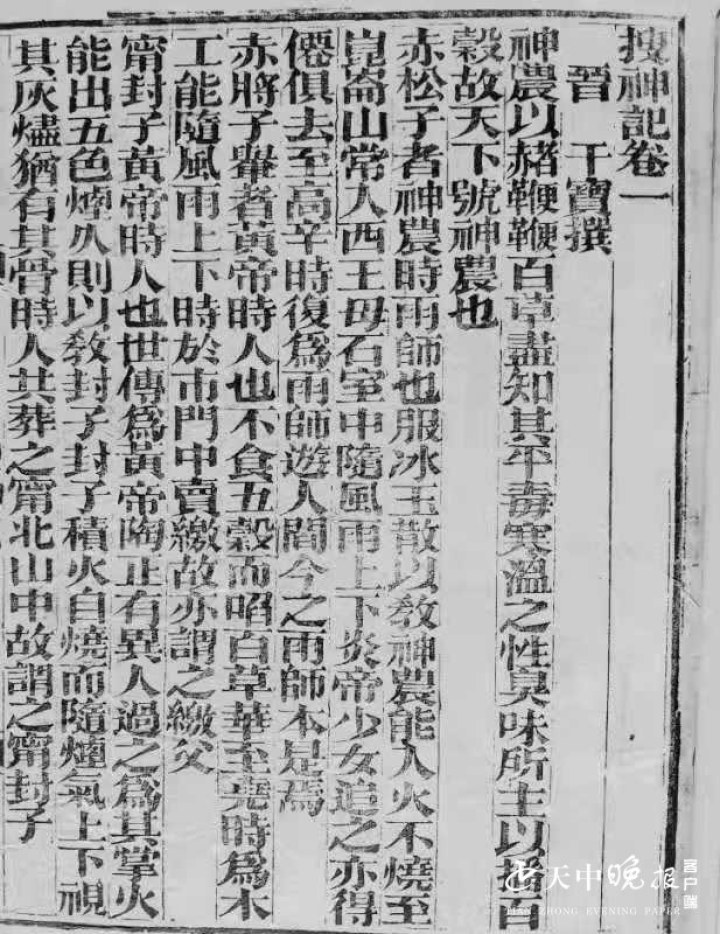 搜神記卷一
晉 干寶撰
神農以赭鞭鞭百草盡知其平毒寒溫之性臭味所主以播百
穀故天下號神農也
赤松子者神農時雨師也服冰玉散以敎神農能入火不燒至
崑崙山常入西王母石室中隨風雨上下炎帝少女追之亦得
僊俱去至高辛時復爲雨師遊人間今之雨師本是焉
赤將子轝者黃帝時人也不食五穀而啗百草華至堯時爲木
工能隨風雨上下時於市門中賣繳故亦謂之繳父
甯封子黃帝時人也世傳爲黃帝陶正有異人過之爲其掌火
能出五色煙久則以敎封子封子積火自燒而隨煙氣上下視
其灰燼猶有其骨時人共葬之甯北山中故謂之甯封子
天中晚报 客户端
TIAN ZHONG EVENING PAPER